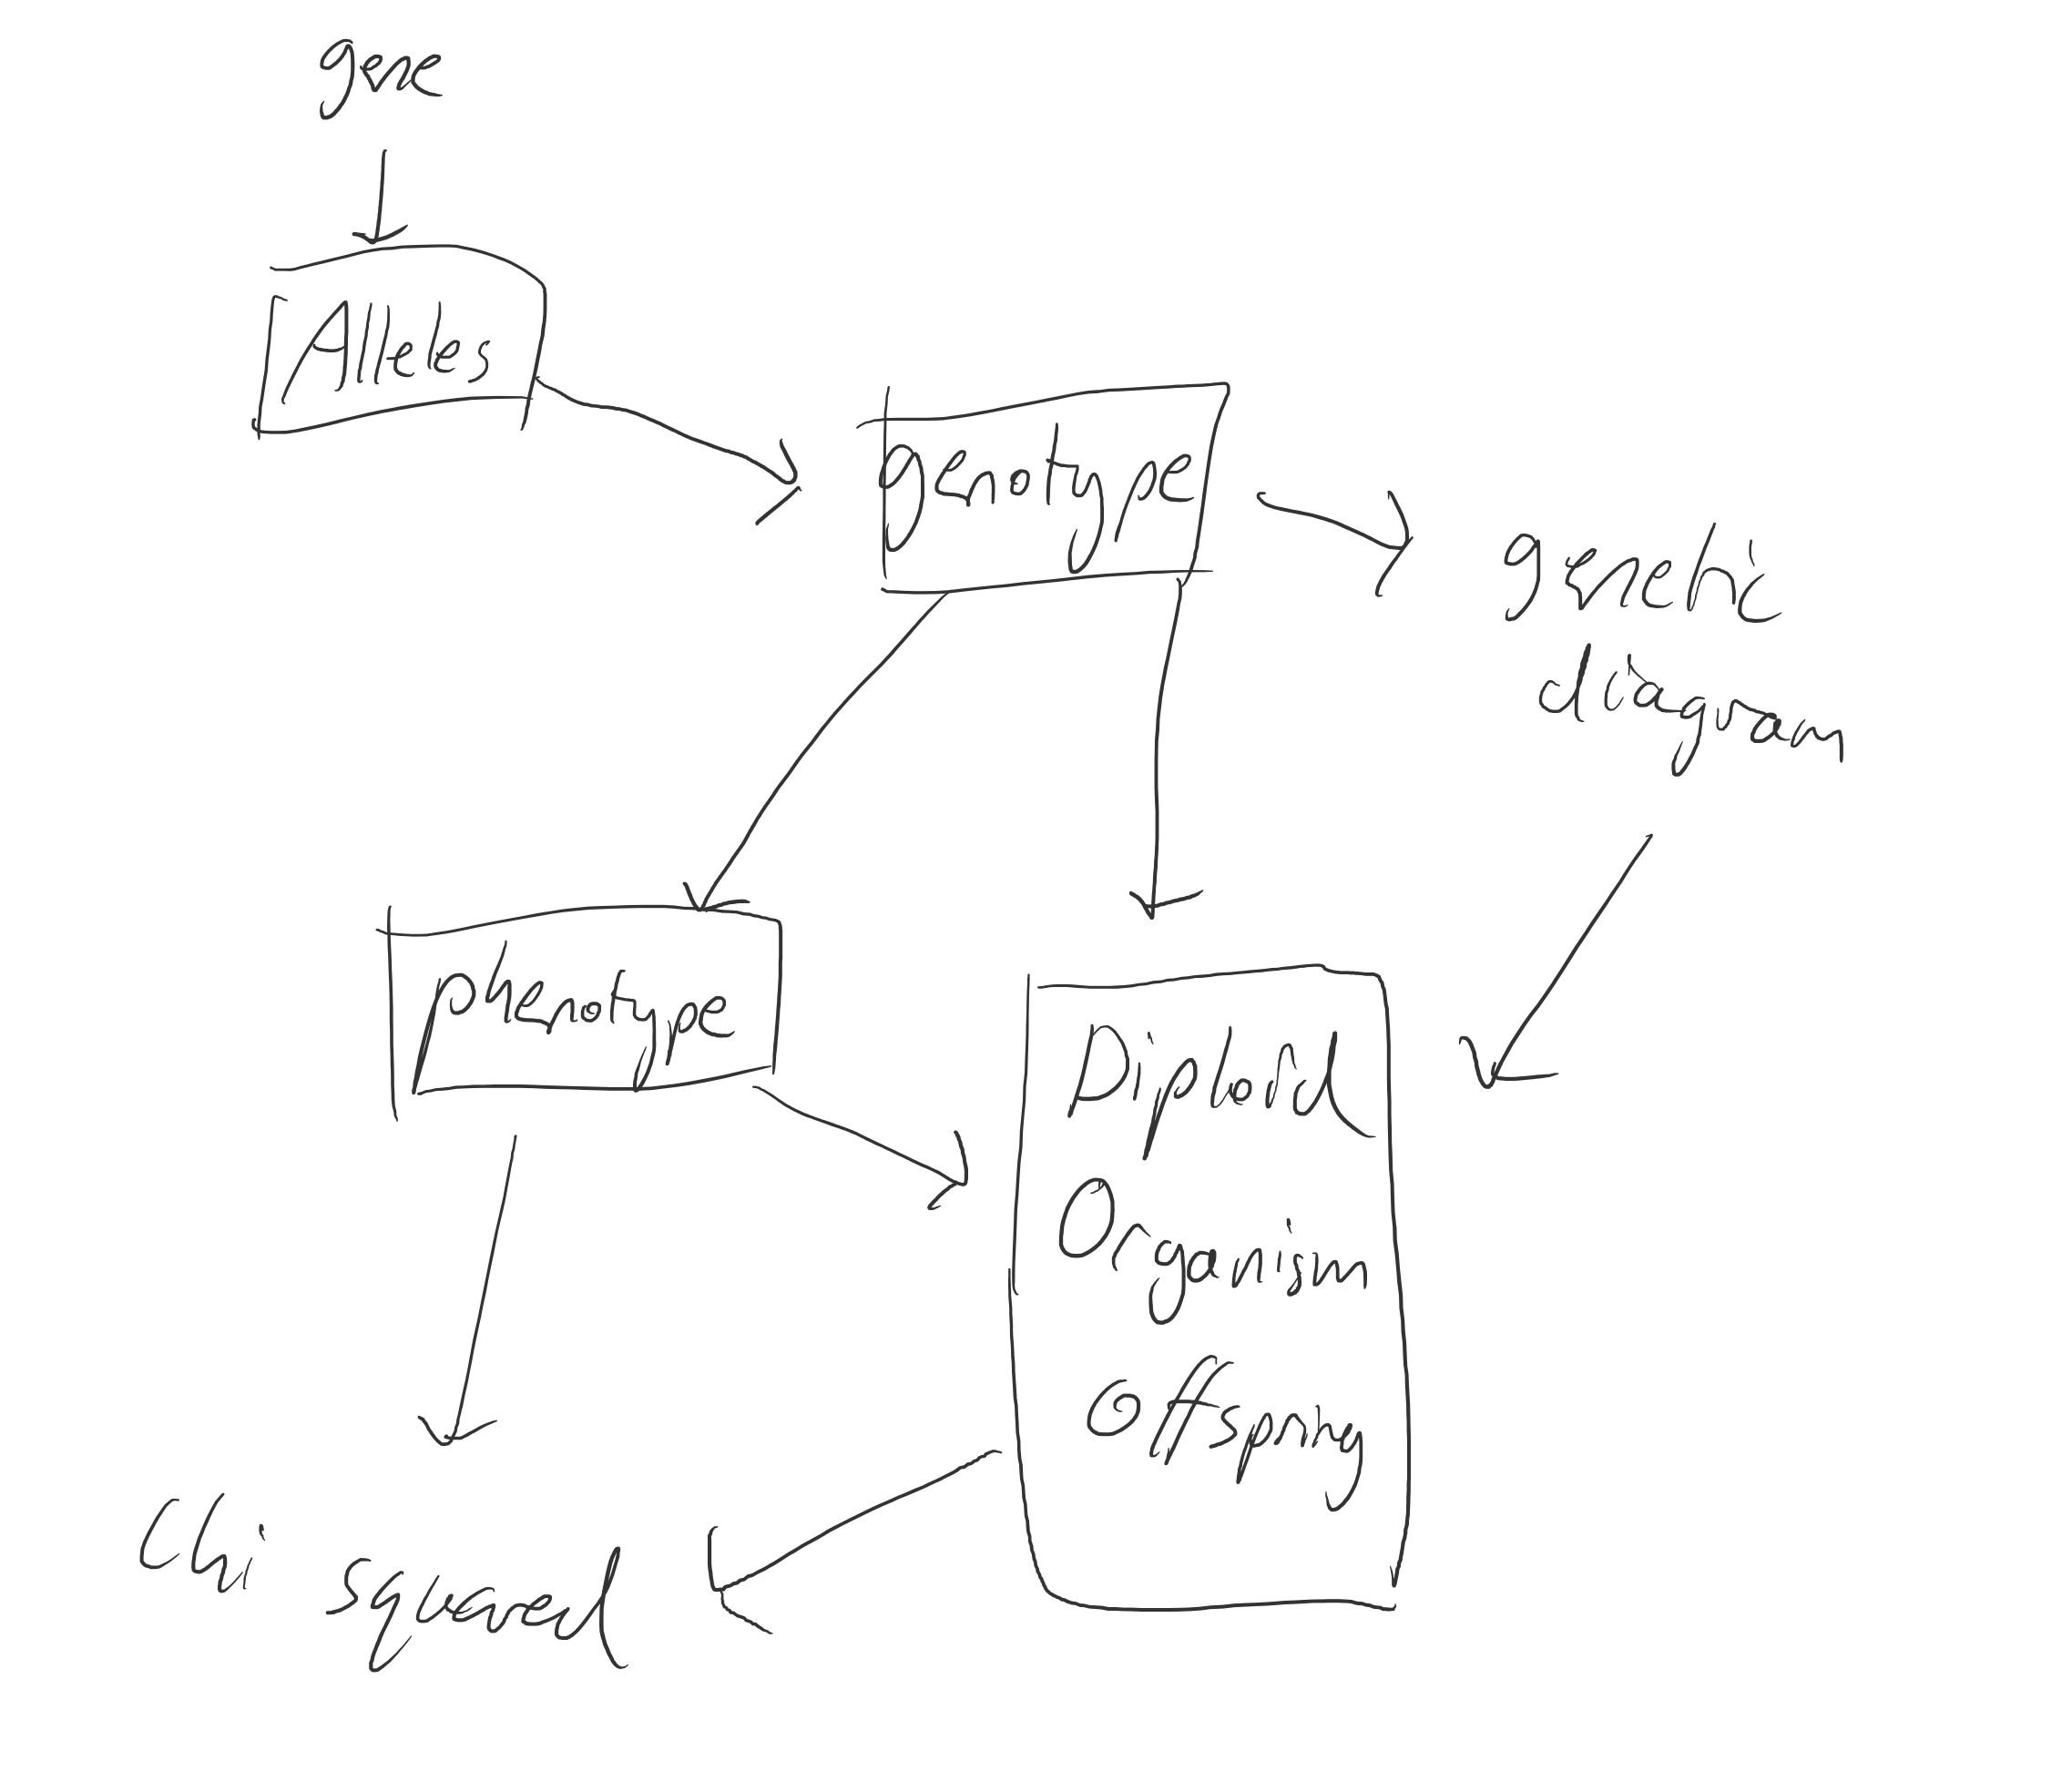 gene
Alleles
genotype
genetic
diagram
phenotype
Diploid
Organism
Offspring
Chi
squared